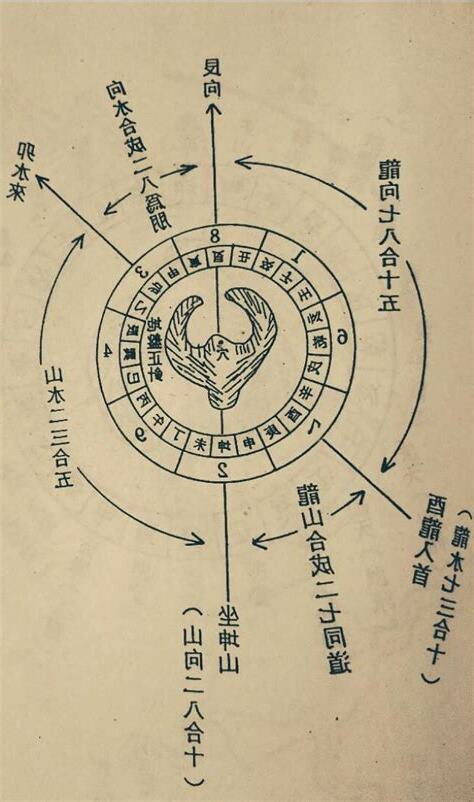 艮向
向水合成二八爲朋
卯水來
龍向七八合十五
8
1
6
7
2
9
4
3
艮丑癸子壬亥乾戌辛酉庚申坤未丁午丙巳巽辰乙卯甲寅
地盤正針
穴
山水二三合五
龍山合成二七同道
酉龍入首
(龍水七三合十)
坐坤山
(山向二八合十)